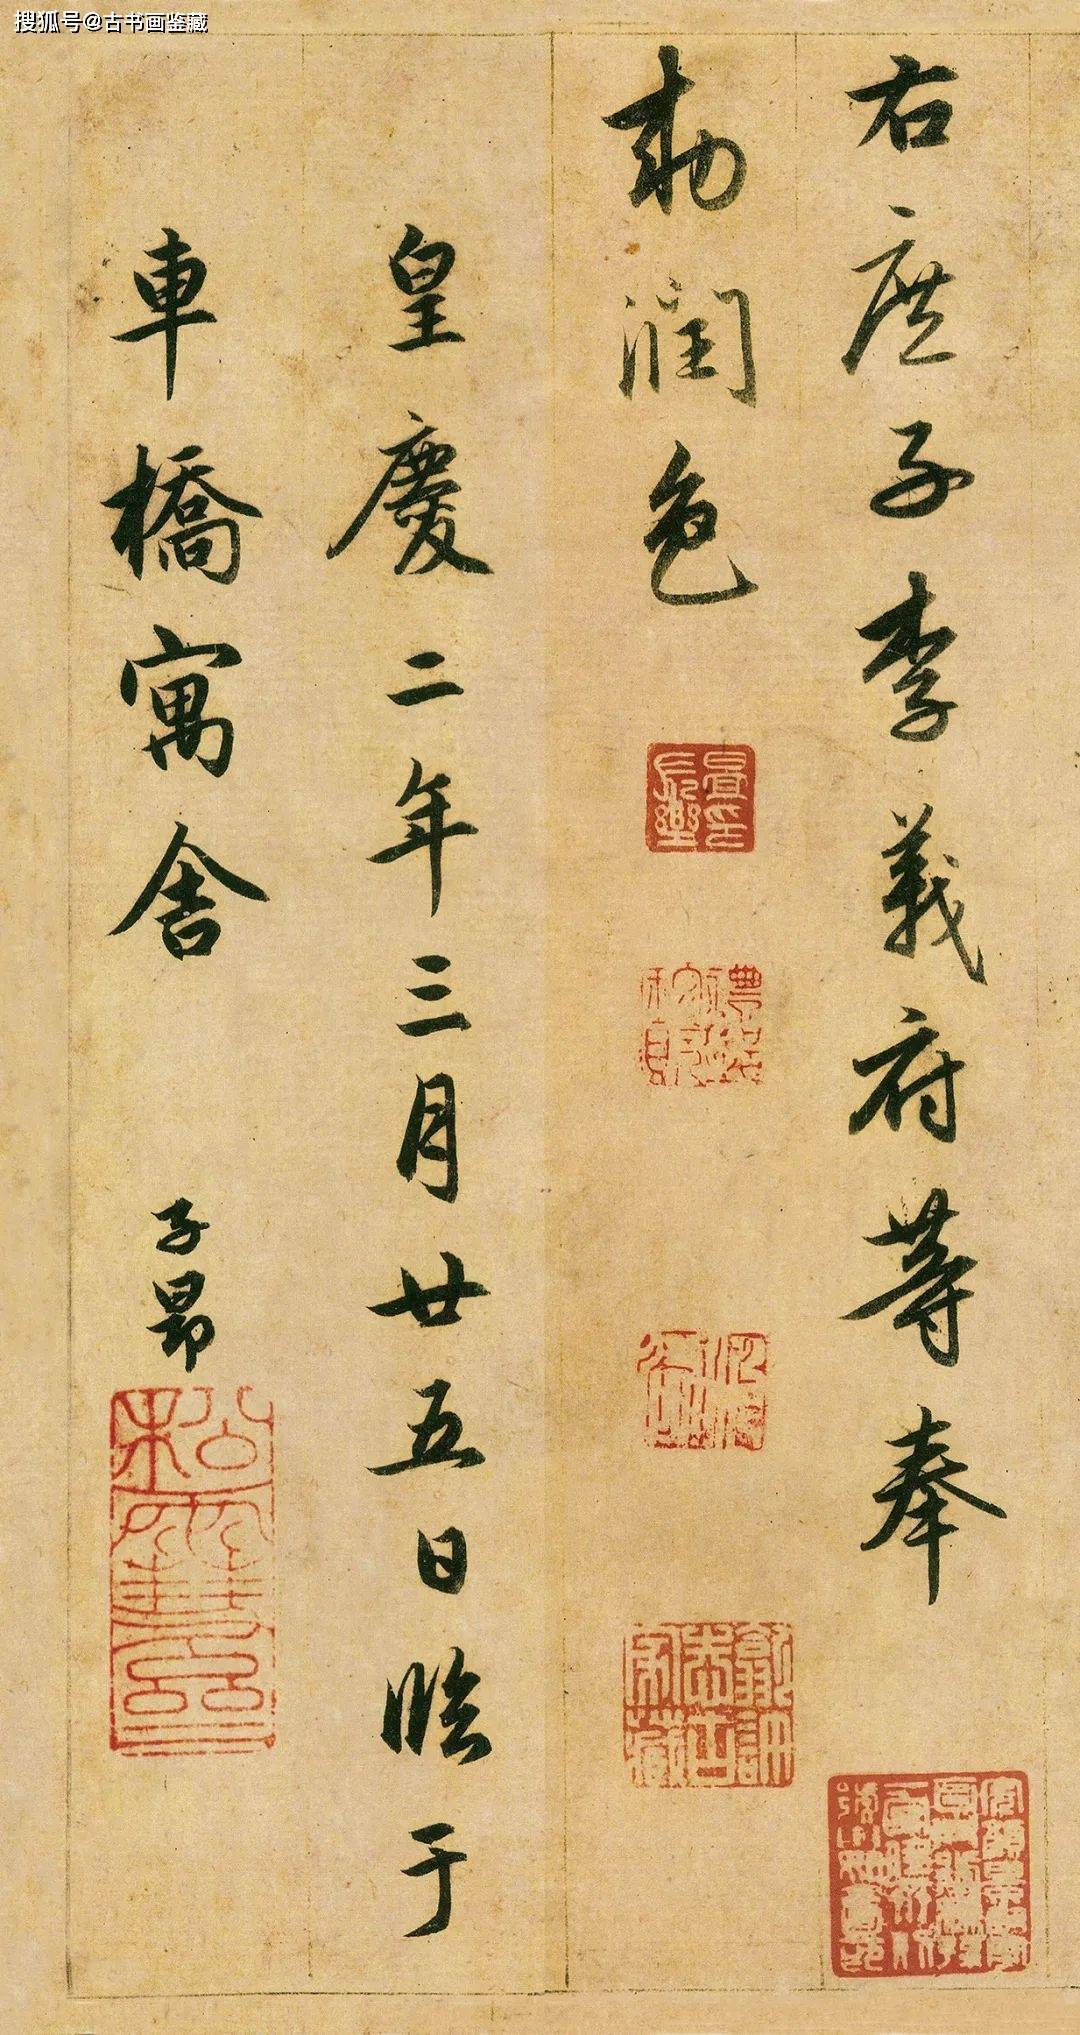 搜狐号@古书画鉴藏
右庶子李義府等奉
勅潤色
皇慶二年三月廿五日臨于
車橋寓舍
子昂
松雪齋